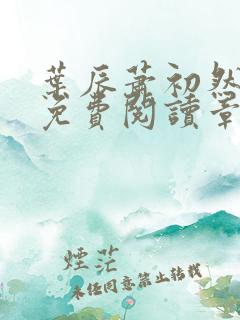 葉辰蕭初然
免費閱讀章
煙茫
未经同意禁止转载